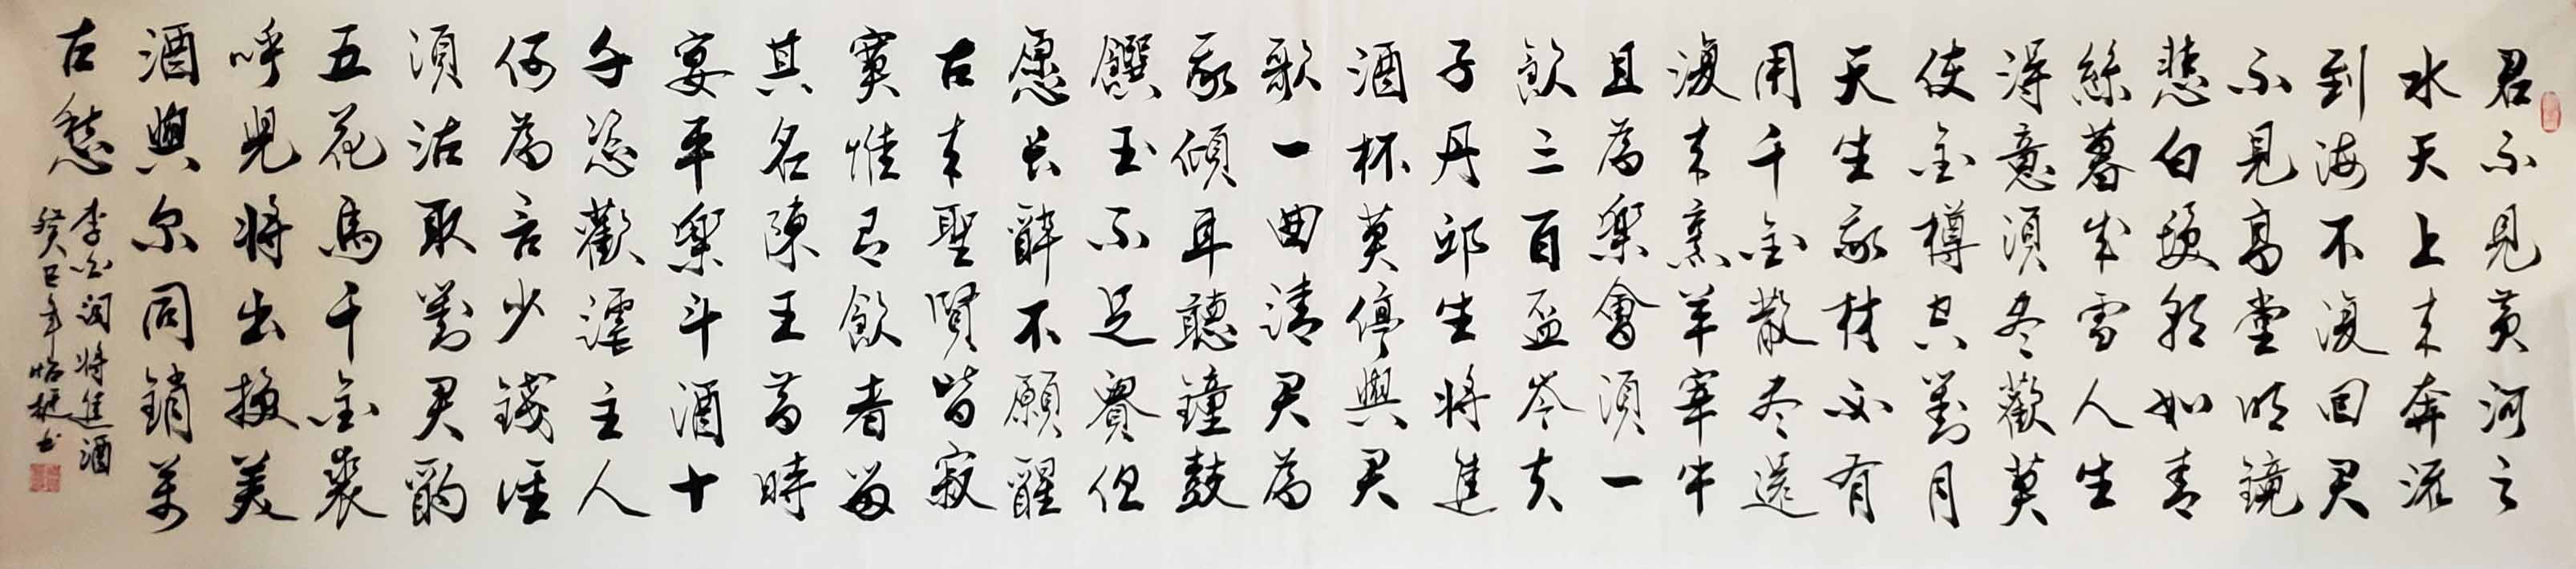 君不見黃河之
水天上來奔流
到海不復回君
不見高堂明鏡
悲白髮朝如青
絲暮成雪人生
得意須盡歡莫
使金樽空對月
天生我材必有
用千金散盡還
復來烹羊宰牛
且為樂會須一
飲三百盃岑夫
子丹邱生將進
酒杯莫停與君
歌一曲請君為
我傾耳聽鐘鼓
饌玉不足貴但
愿長醉不願醒
古來聖賢皆寂
寞惟有飲者留
其名陳王昔時
宴平樂斗酒十
千恣歡謔主人
何為言少錢徑
須沽取對君酌
五花馬千金裘
呼兒將出換美
酒與尔同銷萬
古愁
李白詞將進酒
癸巳年怡書